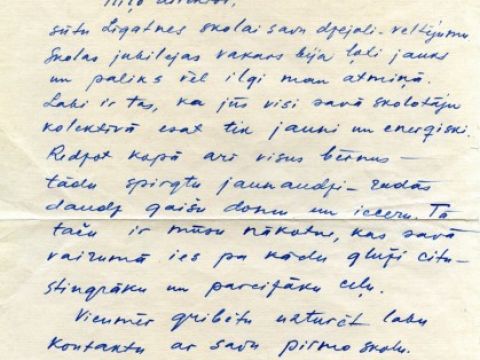 direktor,
sūtu Līgatnes skolai savu dzejoli-veltījumu
Skolas jubilejas vakars bija ļoti jauks
un paliks vēl ilgi man atmiņā.
Labi ir tas, ka jūs visi savā skolotāju
kolektīvā esat tik jauni un enerģiski.
Redzot kopā arī visus bērnus –
tādu spirgtu jaunaudzi – radās
daudz gaišu domu un ieceru. Tā
taču ir mūsu nākotne, kas savā
vairumā ies pa kādu gluži citu –
stingrāku un pareizāku ceļu.
Vienmēr gribētu uzturēt labu
kontaktu ar savu pirmo skolu.